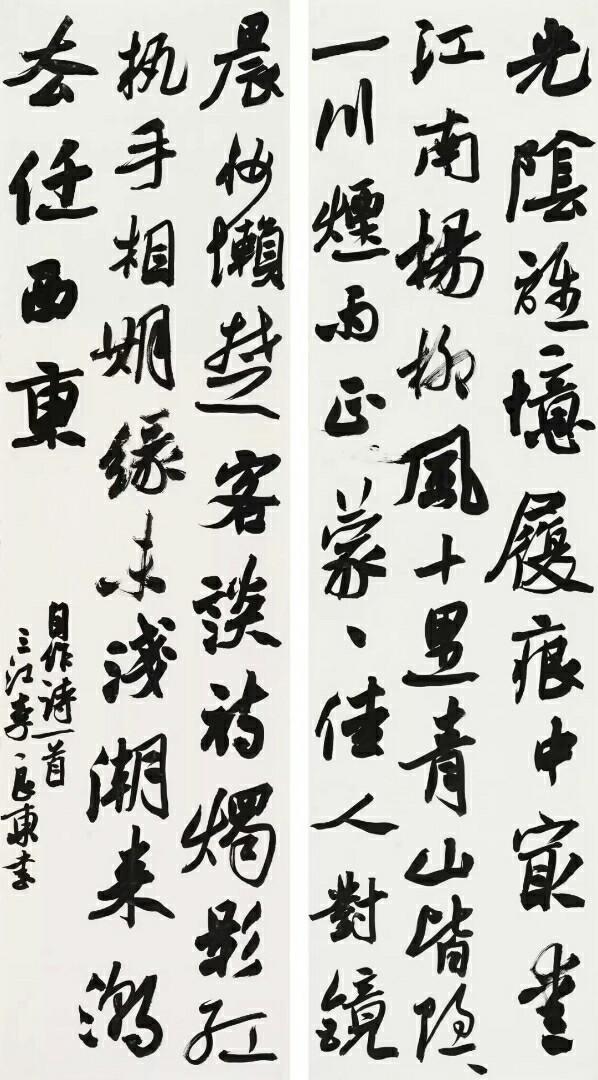 光陰誰憶履痕中最愛
江南楊柳風十里青山皆隐、
一川煙雨正蒙、佳人對鏡
晨妝懶楚客談詩燭影紅
执手相期緣未淺潮來潮
去任西東
自作詩一首
三江李良東書